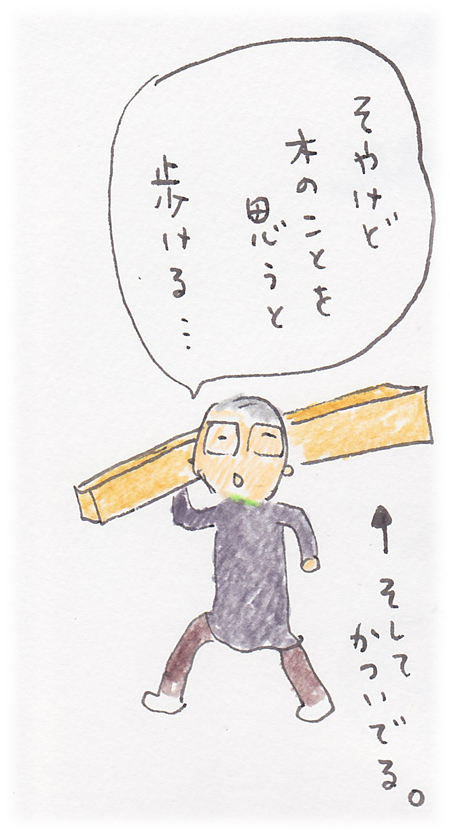 そやけど
木のことを
思うと
歩ける…
↑そして
かついでる。